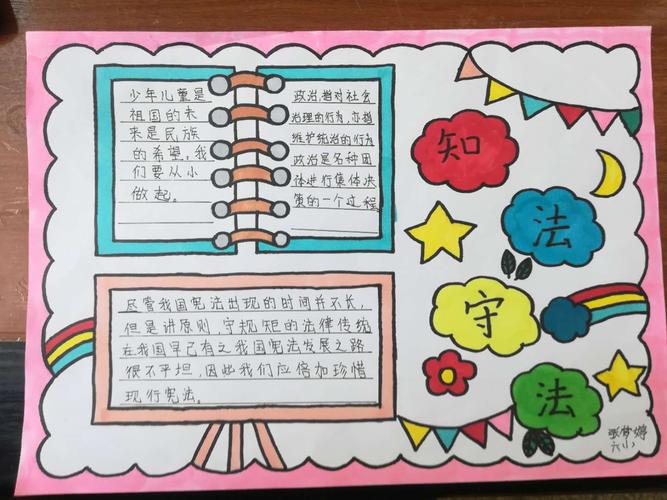 少年儿童是
祖国的未
来是民族
的希望,我
们要从小
做起。
政治,指对社会
治理的行为,亦指
维护统治的行为
政治是各种团
体进行集体决
策的一个过程
知
法
守
法
尽管我国宪法出现的时间并不长,
但是讲原则,守规矩的法律传统
在我国早已有之我国宪法发展之路
很不平坦,因此我们应倍加珍惜
现行宪法。
张梦婷
六小